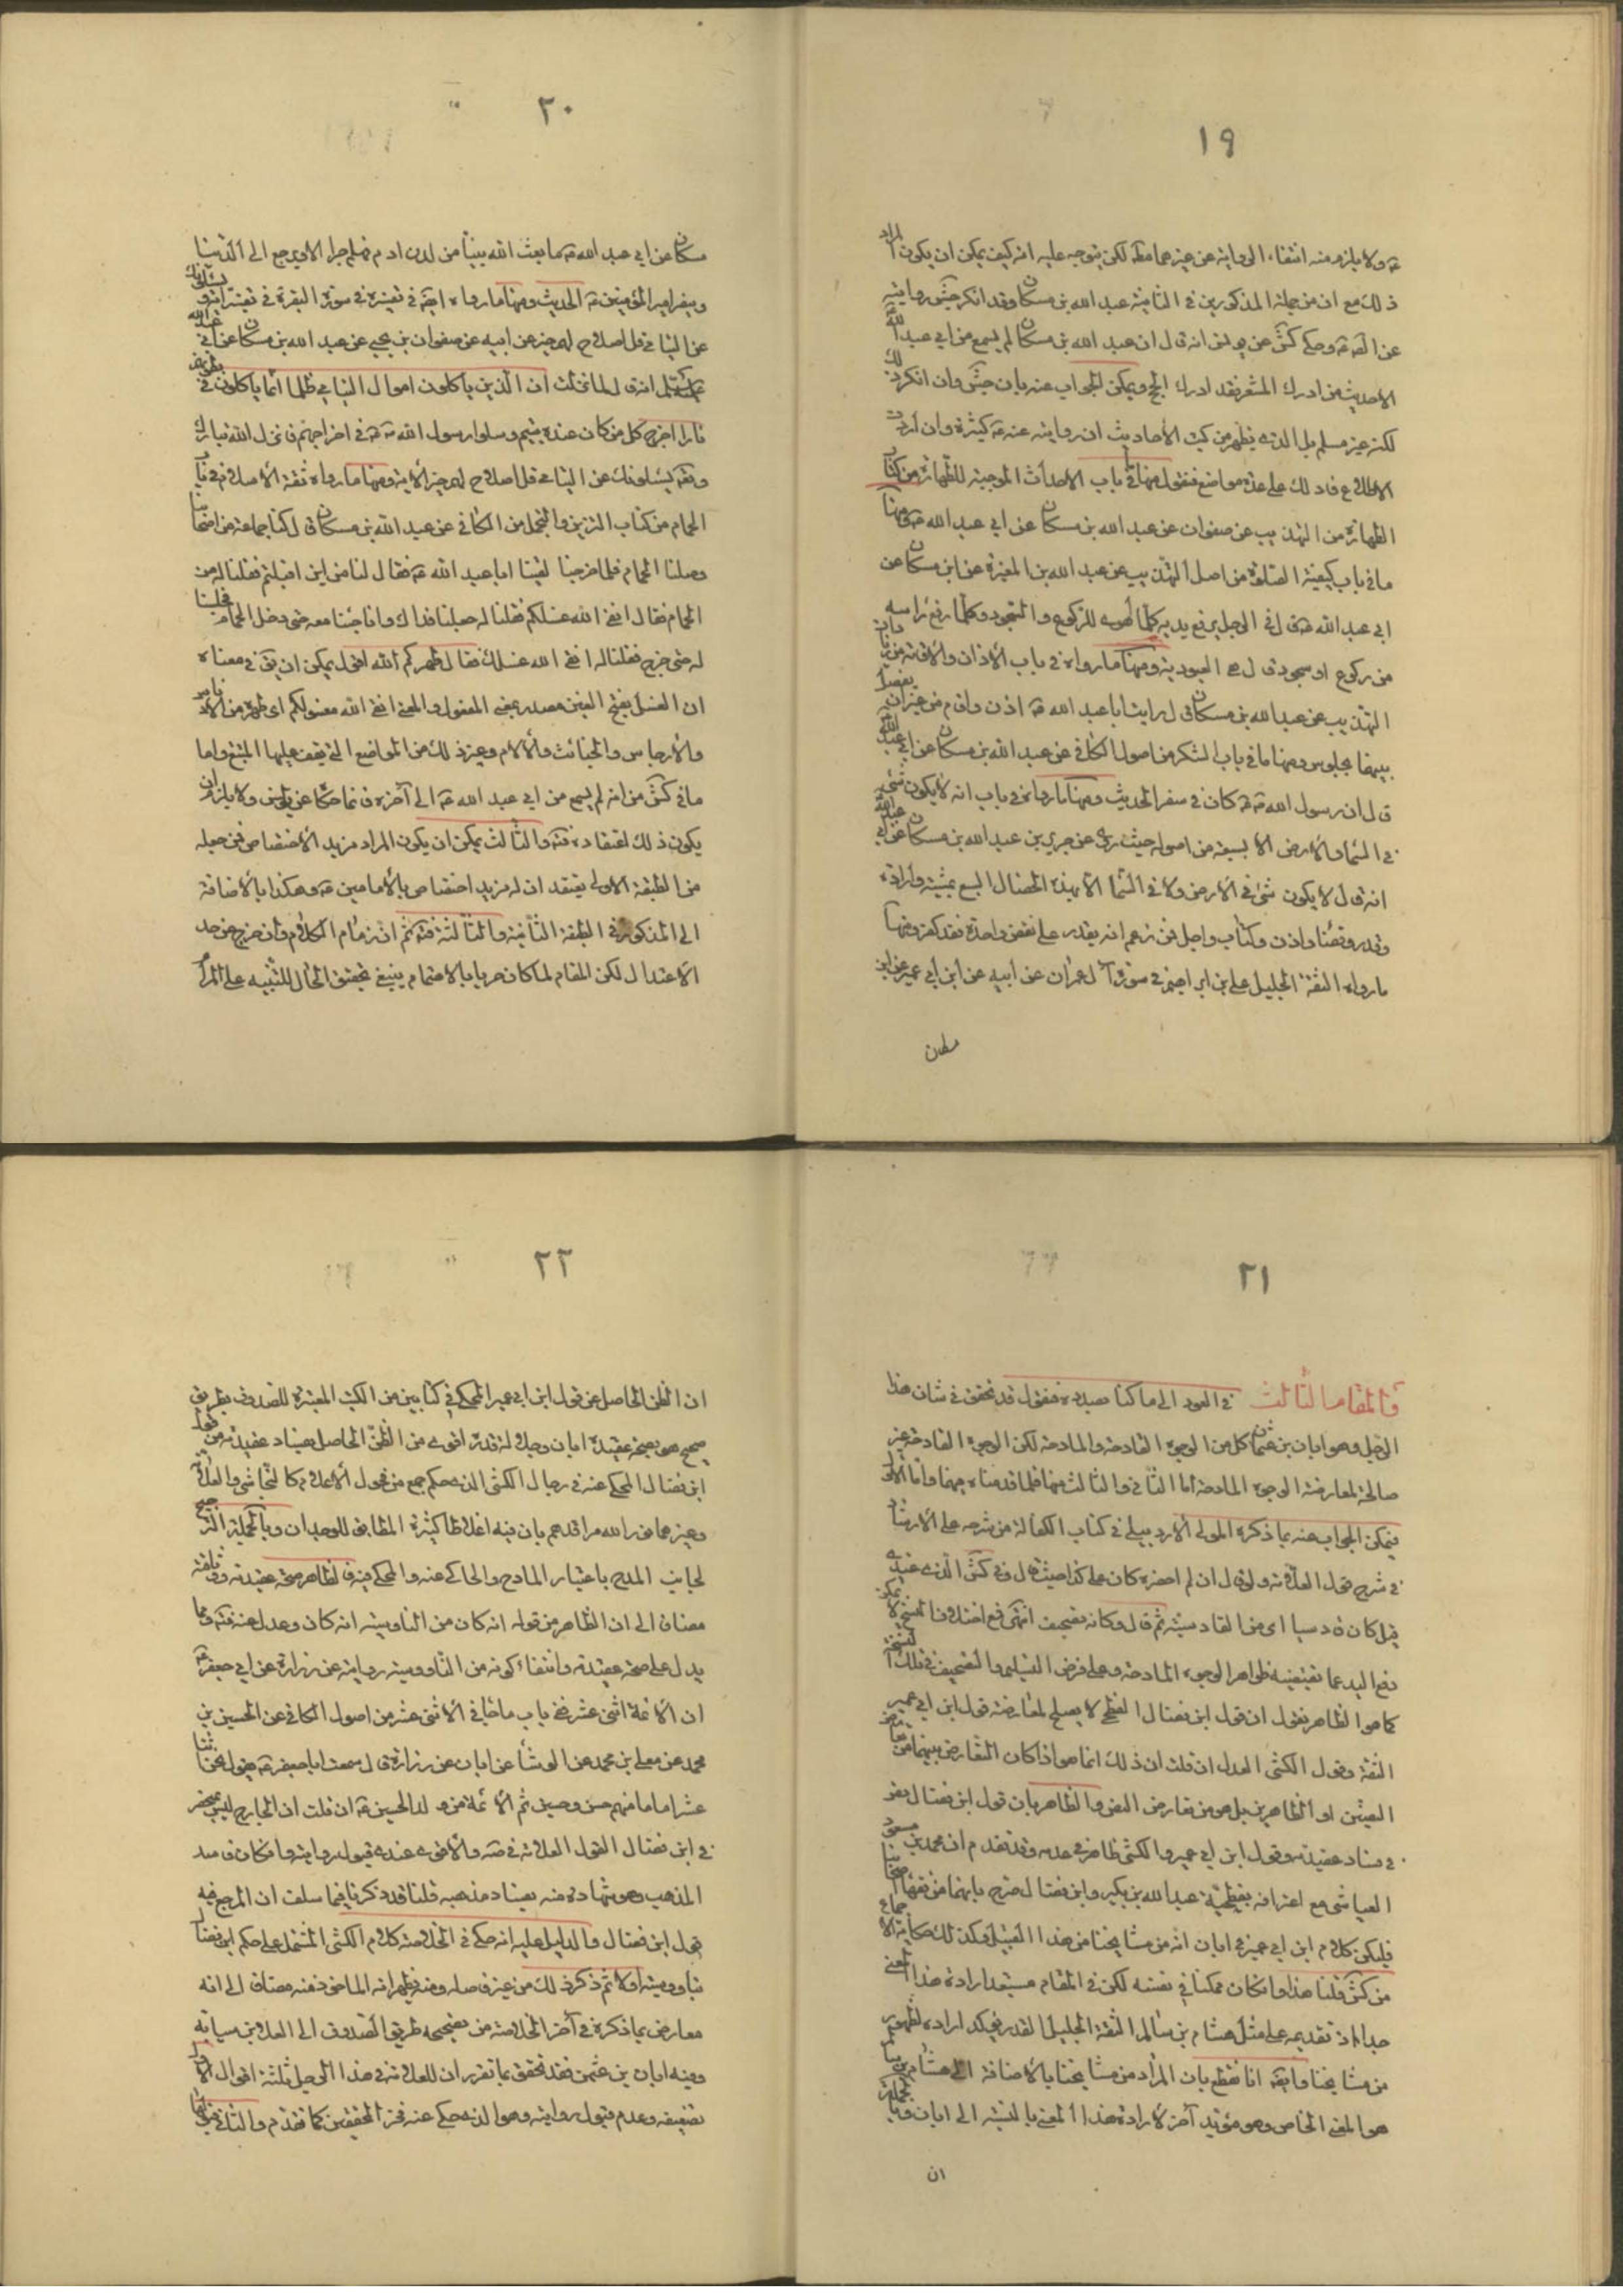 ١٩
ولا يلزم منه انتفاء الرواية عن غيرهما مطلقا لكن يتوجه عليه انه كيف يمكن ان يكون المراد
ذلك مع ان من جملة المذكورين في الثانية عبد الله بن مسكان وقد انكر جش روايته
عن الصق وحكى كش عن يونس انه قال ان عبد الله بن مسكان لم يسمع من ابي عبد الله
الا حديث من ادرك المشعر فقد ادرك الحج ويمكن الجواب عنه بان جش وان انكر ذلك
لكنه غير مسلم بل الذي يظهر من كتب الأحاديث ان روايته عنه كثيرة وان اردت
الاطلاع فا ذلك على عدة مواضع فنقول منها في باب الاحداث الموجبة للطهارة من كتاب
الطهارة من التهذيب عن صفوان عن عبد الله بن مسكان عن ابي عبد الله ومنها
ما في باب كيفية الصلوة من اصل التهذيب عن عبد الله بن المغيرة عن ابن مسكان عن
ابي عبد الله قال في الرجل يرفع يديه كلما اهوى للركوع والسجود وكلما رفع رأسه
من ركوع او سجود قال هي العبودية ومنها ما رواه في باب الأذان والاقامة من زيادات
التهذيب عن عبد الله بن مسكان قال رايت ابا عبد الله اذن واقام من غير ان يفصل
بينهما بجلوس ومنها ما في باب الشكر من اصول الكافي عن عبد الله بن مسكان عن ابي عبد الله
قال ان رسول الله كان في سفر الحديث ومنها ما رواه في باب انه لا يكون شئ
في السماء والأرض الا بسبعة من اصوله حيث روى عن حريز بن عبد الله بن مسكان عن ابي عبد الله
انه قال لا يكون شئ في الأرض ولا في السماء الا بهذه الخصال السبع بمشية وارادة
وقدر وقضاء واذن وكتاب واجل فمن زعم انه يقدر على نقض واحدة فقد كفر ومنها
ما رواه الثقة الجليل علي بن ابراهيم في سورة آل عمران عن ابيه عن ابن ابي عمير عن ابن
مسكان
٢٠
مسكان عن ابي عبد الله ما بعث الله نبيا من لدن ادم فهلم جرا الا ويرجع الى الدنيا
وينصر امير المؤمنين الحديث ومنها ما رواه ايضا في تفسيره في سورة البقرة في تفسير آية ويسئلونك
عن اليتامى قل اصلاح لهم خير عن ابيه عن صفوان بن يحيى عن عبد الله بن مسكان عن ابي عبد الله
انه قال لما نزلت ان الذين يأكلون اموال اليتامى ظلما انما يأكلون في بطونهم
نارا اخرج كل من كان عنده يتيم وسئلوا رسول الله في اخراجهم فانزل الله تبارك
وتعالى يسئلونك عن اليتامى قل اصلاح لهم خير الأية ومنها ما رواه ثقة الأسلام في باب
الحمام من كتاب التزين والتجمل من الكافي عن عبد الله بن مسكان قال كنا جماعة من اصحابنا
دخلنا الحمام فلما خرجنا لقينا ابا عبد الله فقال لنا من اين اقبلتم فقلنا له من
الحمام فقال انقى الله غسلكم فقلنا له جعلنا فداك وانا جئنا معه حتى دخل الحمام فجلسنا
له حتى خرج فقلنا له انقى الله غسلك فقال طهركم الله اقول يمكن ان يقال في معناه
ان الغسل بفتح الغين مصدر بمعنى المفعول والمعنى انقى الله مغسولكم اى طهره من الادناس
والأرجاس والخبائث والألام وغير ذلك من المواضع التي يقف عليها المتتبع واما
ما في كش من انه لم يسمع من ابي عبد الله الى آخره فانما حكاه عن يونس ولا يلزم ان
يكون ذلك اعتقاده والثالث يمكن ان يكون المراد مزيد الأختصاص فمن جعله
من الطبقة الاولى يعتقد ان له مزيد اختصاص بالأمامين وهكذا بالأضافة
الى المذكور في الطبقة الثانية والثالثة ثم ان زمام الكلام وان خرج عن حد
الأعتدال لكن المقام لما كان حريا بالاهتمام ينبغي تحقيق الحال للتنبيه على المرام
٢١
والمقام الثالث في العود الى ما كنا بصدده فنقول قد تحقق في شان هذا
الرجل وهو ابان بن عثمان كل من الوجوه القادحة والمادحة لكن الوجوه القادحة غير
صالحة لمعارضة الوجوه المادحة اما الثاني والثالث منها فلما قدمناه فيهما واما الأول
فيمكن الجواب عنه بما ذكره المولى الأردبيلي في كتاب الكفالة من شرحه على الأرشاد
في شرح قول العلامة ولو قال ان لم احضره كان على كذا حيث قال وفي كش الذي عندي
قيل كان قادسيا اى من القادسية ثم قال وكانه تصحيف انتهى فمع اختلاف النسخ لا يمكن
رفع اليد عما تقتضيه ظواهر الوجوه المادحة وعلى فرض التسليم والتصحيف في تلك النسخة
كما هو الظاهر نقول ان قول ابن فضال الفطحي لا يصلح لمعارضة قول ابن ابي عمير
الثقة وقول الكشى العدل ان قلت ان ذلك انما هو اذا كان التعارض بينهما من تعارض
النصين او الظاهرين بل هو من تعارض النص والظاهر بان قول ابن فضال نص
في فساد عقيدته وقول ابن ابي عمير والكشى ظاهر في عدمه وقد تقدم ان محمد بن مسعود
العياشى مع اعترافه بفطحية عبد الله بن بكير وابن فضال صرح بانهما من فقهاء اصحابنا
فليكن كلام ابن ابي عمير في ابان انه من مشايخنا من هذا القبيل وكذلك حكاية الاجماع
من كش قلنا هذا وان كان ممكنا في نفسه لكن في المقام مستبعد ارادة هذا المعنى
جدا اذ تقديمه على مثل هشام بن سالم الثقة الجليل القدر يؤكد ارادة
من مشايخنا وايضا انا نقطع بان المراد من مشايخنا بالأضافة الى هشام بن سالم
هو المعنى الخاص وهو مؤيد آخر لأرادة هذا المعنى بالنسبة الى ابان وبالجملة
ان
٢٢
ان الظن الحاصل عن قول ابن ابي عمير المحكي في كتابين من الكتب المعتبرة للصدوق بطريق
صحيح هو بصحة عقيدة ابان وجلالة قدره اقوى من الظن الحاصل بفساد عقيدته من قول
ابن فضال المحكي عنه في رجال الكشى الذي حكم جمع من فحول الأعلام كالنجاشى والعلامة
وغيرهما نور الله مراقدهم بان فيه اغلاطا كثيرة المطابق للوجدان وبالجملة الترجيح
لجانب المدح باعتبار المادح والحاكي عنه والمحكي فيه فالظاهر صحة عقيدته ووثاقته
مضافا الى ان الظاهر من قوله انه كان من الناووسية انه كان وعدل عنه ومما
يدل على صحة عقيدته وانتفاء كونه من الناووسية روايته عن زرارة عن ابي جعفر
ان الأئمة اثنى عشر ففي باب ما جاء في الأثنى عشر من اصول الكافي عن الحسين بن
محمد عن معلى بن محمد عن الوشاء عن ابان عن زرارة قال سمعت ابا جعفر يقول نحن اثنا
عشر اماما منهم حسن وحسين ثم الأئمة من ولد الحسين ان قلت ان الجارح ليس بمنحصر
في ابن فضال لقول العلامة في صه والأقوى عندى قبول روايته وان كان فاسد
المذهب وهو شهادة منه بفساد مذهبه قلنا قد ذكرنا فيما سلف ان المرجع فيه
قول ابن فضال والدليل عليه انه حكى في الخلاصة كلام الكشى المشتمل على حكم ابن فضال
بناووسيته اولا ثم ذكر ذلك من غير فاصلة ومنه يظهر انه الماخذ مضافا الى انه
معارض بما ذكره في آخر الخلاصة من تصحيحه طريق الصدوق الى العلا بن سيابة
وفيه ابان بن عثمن فقد تحقق بما تقرر ان للعلامة في هذا الرجل ثلثة اقوال الاول
تضعيفه وعدم قبول روايته وهو الذي حكى عنه فخر المحققين كما تقدم والثاني